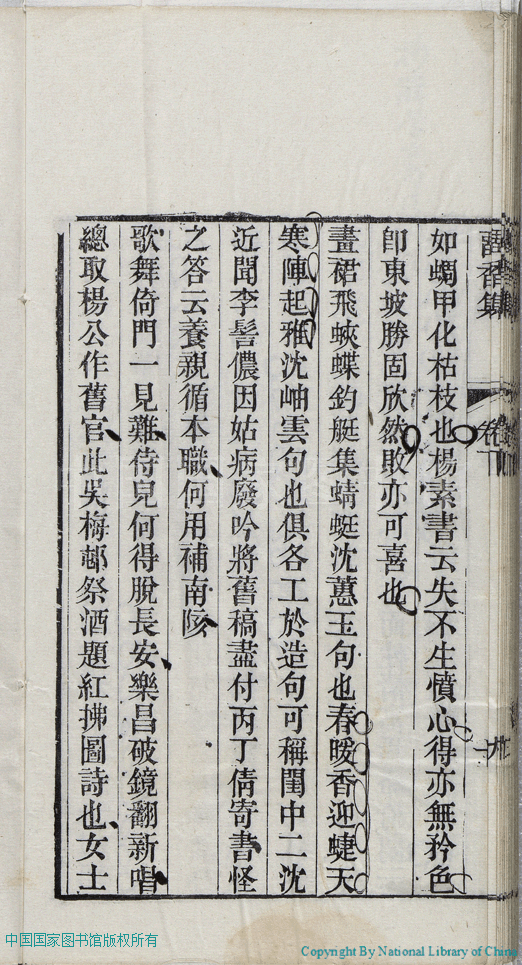 如蠋甲化枯枝也楊素書云失不生憤心得亦無矜色
卽東坡勝固欣然敗亦可喜也
畫裙飛蛺蝶釣艇集蜻蜓沈蕙玉句也春暖香迎蜨天
寒陣起雅沈岫雲句也俱各工於造句可稱閨中二沈
近聞李髻儂因姑病廢吟將舊稿盡付丙丁倩寄書怪
之答云養親循本職何用補南陔
歌舞倚門一見難侍兒何得脫長安樂昌破鏡翻新唱
總取楊公作舊官此吳梅邨祭酒題紅拂圖詩也女士
香集
卷下
中国国家图书馆版权所有
Copyright By National Library of China